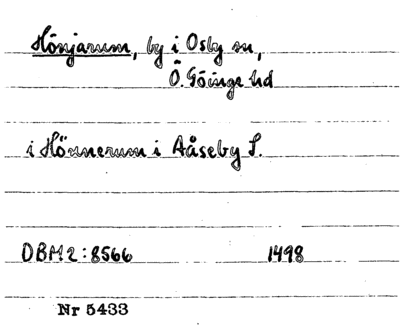 Hönjarum, by i Osby sn,
Ö. Göinge hd
i Hönnerum i Aåseby S.
DBM2:8566 1498
Nr 5433